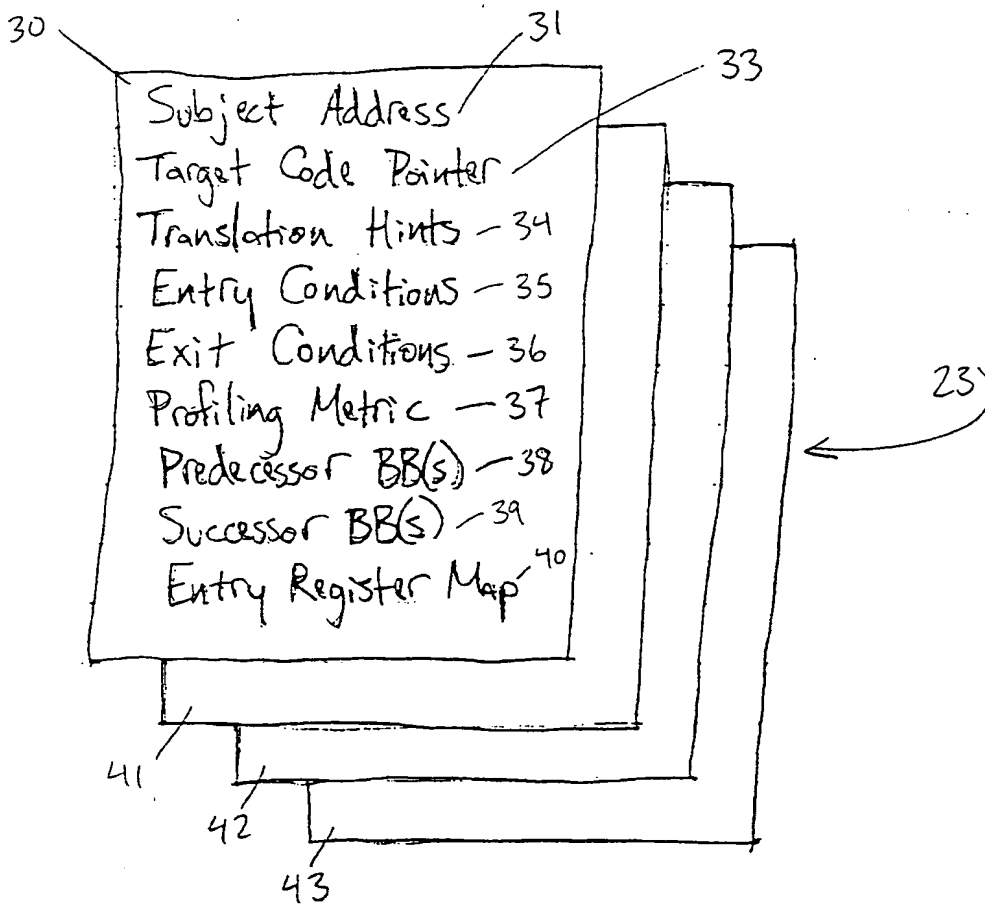 30
31
33
Subject Address
Target Code Pointer
Translation Hints - 34
Entry Conditions - 35
Exit Conditions - 36
Profiling Metric - 37
Predecessor BB(s) - 38
Successor BB(s) - 39
Entry Register Map - 40
23
41
42
43